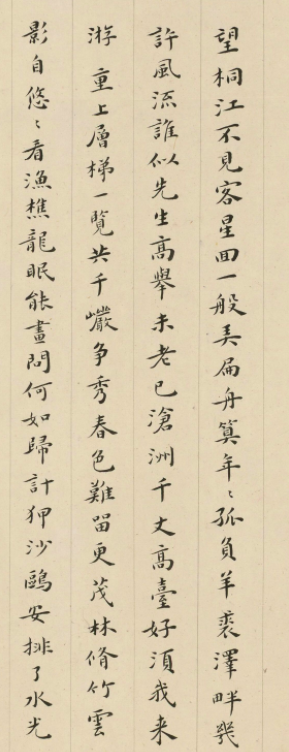 望桐江不見客星回一般美扁舟算年〻孤負羊裘澤畔幾
許風流誰似先生高舉未老已滄洲千丈高臺好須我来
游重上層梯一覽共千巖争秀春色難留更茂林脩竹雲
影自悠〻看漁樵龍眠能畫問何如歸計狎沙鷗安排了水光